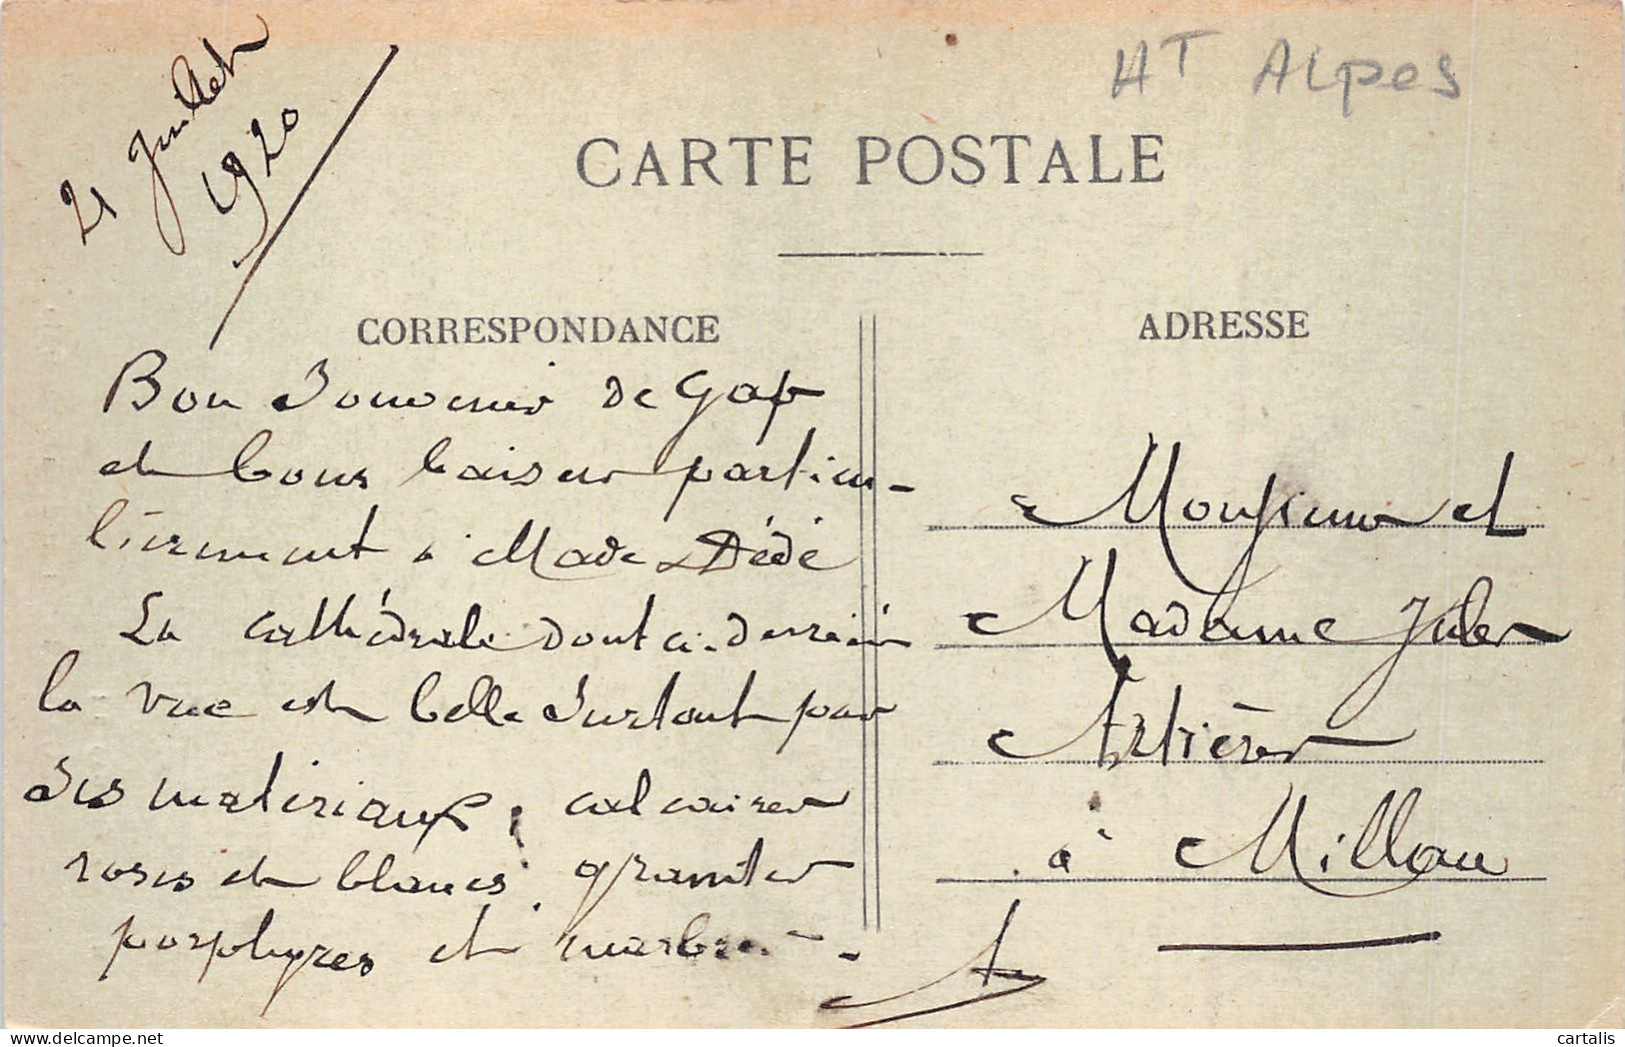 21 Juillet
1920
Ht Alpes
CARTE POSTALE
CORRESPONDANCE
Bon Souvenir de Gap
et bons baisers particu-
lièrement à Made & Dédé
La cathédrale dont ci-derrière
la vue est belle Surtout par
Ses matériaux, calcaires
roses et blancs, granites
porphyres et marbres.
ADRESSE
Monsieur et
Madame Jules
Artières
à Millau
cartalis
delcampe.net